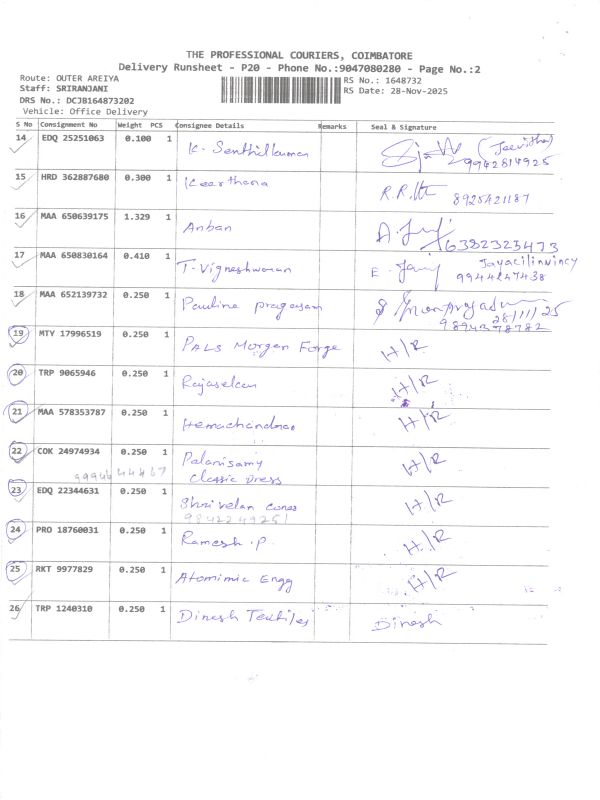 THE PROFESSIONAL COURIERS, COIMBATORE
Delivery Runsheet - P20 - Phone No.:9047080280 - Page No.:2
Route: OUTER AREIYA RS No.: 1648732
Staff: SRIRANJANI RS Date: 28-Nov-2025
DRS No.: DCJB164873202
Vehicle: Office Delivery
S No Consignment No Weight PCS Consignee Details Remarks Seal & Signature
14 EDQ 25251063 0.100 1 K. Senthilkumar (Jeevitha)
9942814925
15 HRD 362887680 0.300 1 Keerthana 8925421187
16 MAA 650639175 1.329 1 Anban 6382325473
17 MAA 650830164 0.410 1 T. Vigneshwaran Jayacilinvincy
9944247438
18 MAA 652139732 0.250 1 Paulina pragasam 28/11/25
9894378782
19 MTY 17996519 0.250 1 PALS Morgan Forge H/R
20 TRP 9065946 0.250 1 Rajasekan H/R
21 MAA 578353787 0.250 1 Hemachandrao H/R
22 COK 24974934 0.250 1 Palanisamy H/R
classic Dress
23 EDQ 22344631 0.250 1 Shri velan cones H/R
9842249251
24 PRO 18760031 0.250 1 Ramesh .P H/R
25 RKT 9977829 0.250 1 Atomimic Engg H/R
26 TRP 1240310 0.250 1 Dinesh Textiles Dinesh